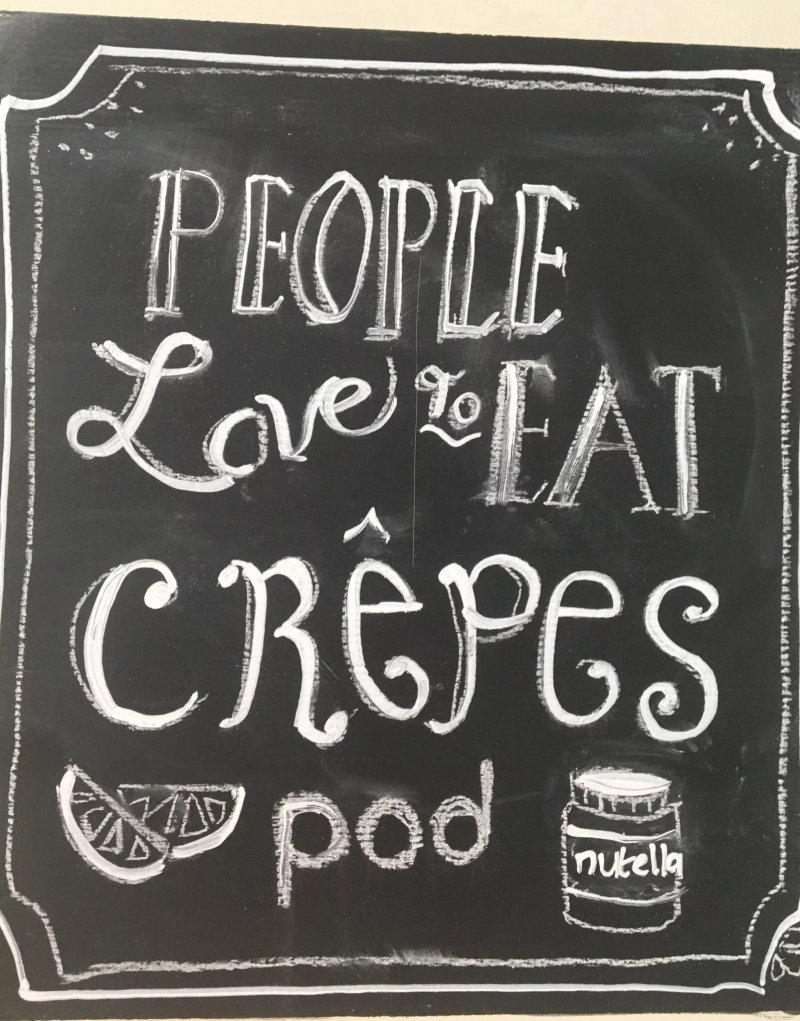 PEOPLE
Love to EAT
CRÊPES
pod
nutella